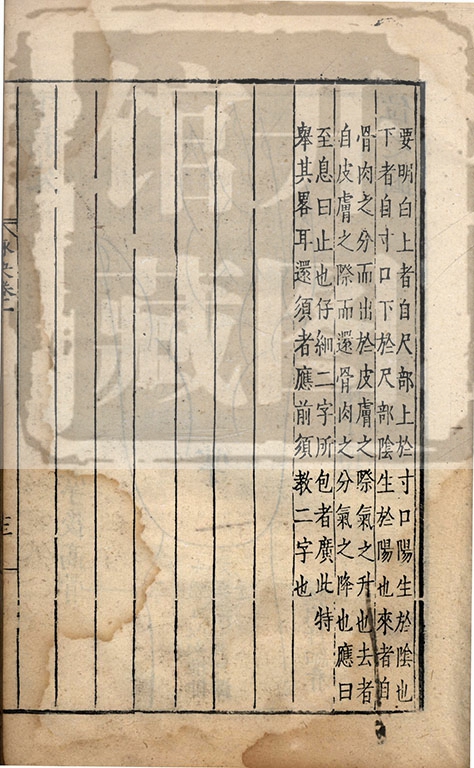 要明白上者自尺部上於寸口陽生於陰也
下者自寸口下於尺部陰生於陽也來者自
骨肉之分而出於皮膚之際氣之升也去者
自皮膚之際而還骨肉之分氣之降也應曰
至息曰止也仔細二字所包者廣此特
舉其畧耳還須者應前須教二字也
脉訣卷一
三
館藏